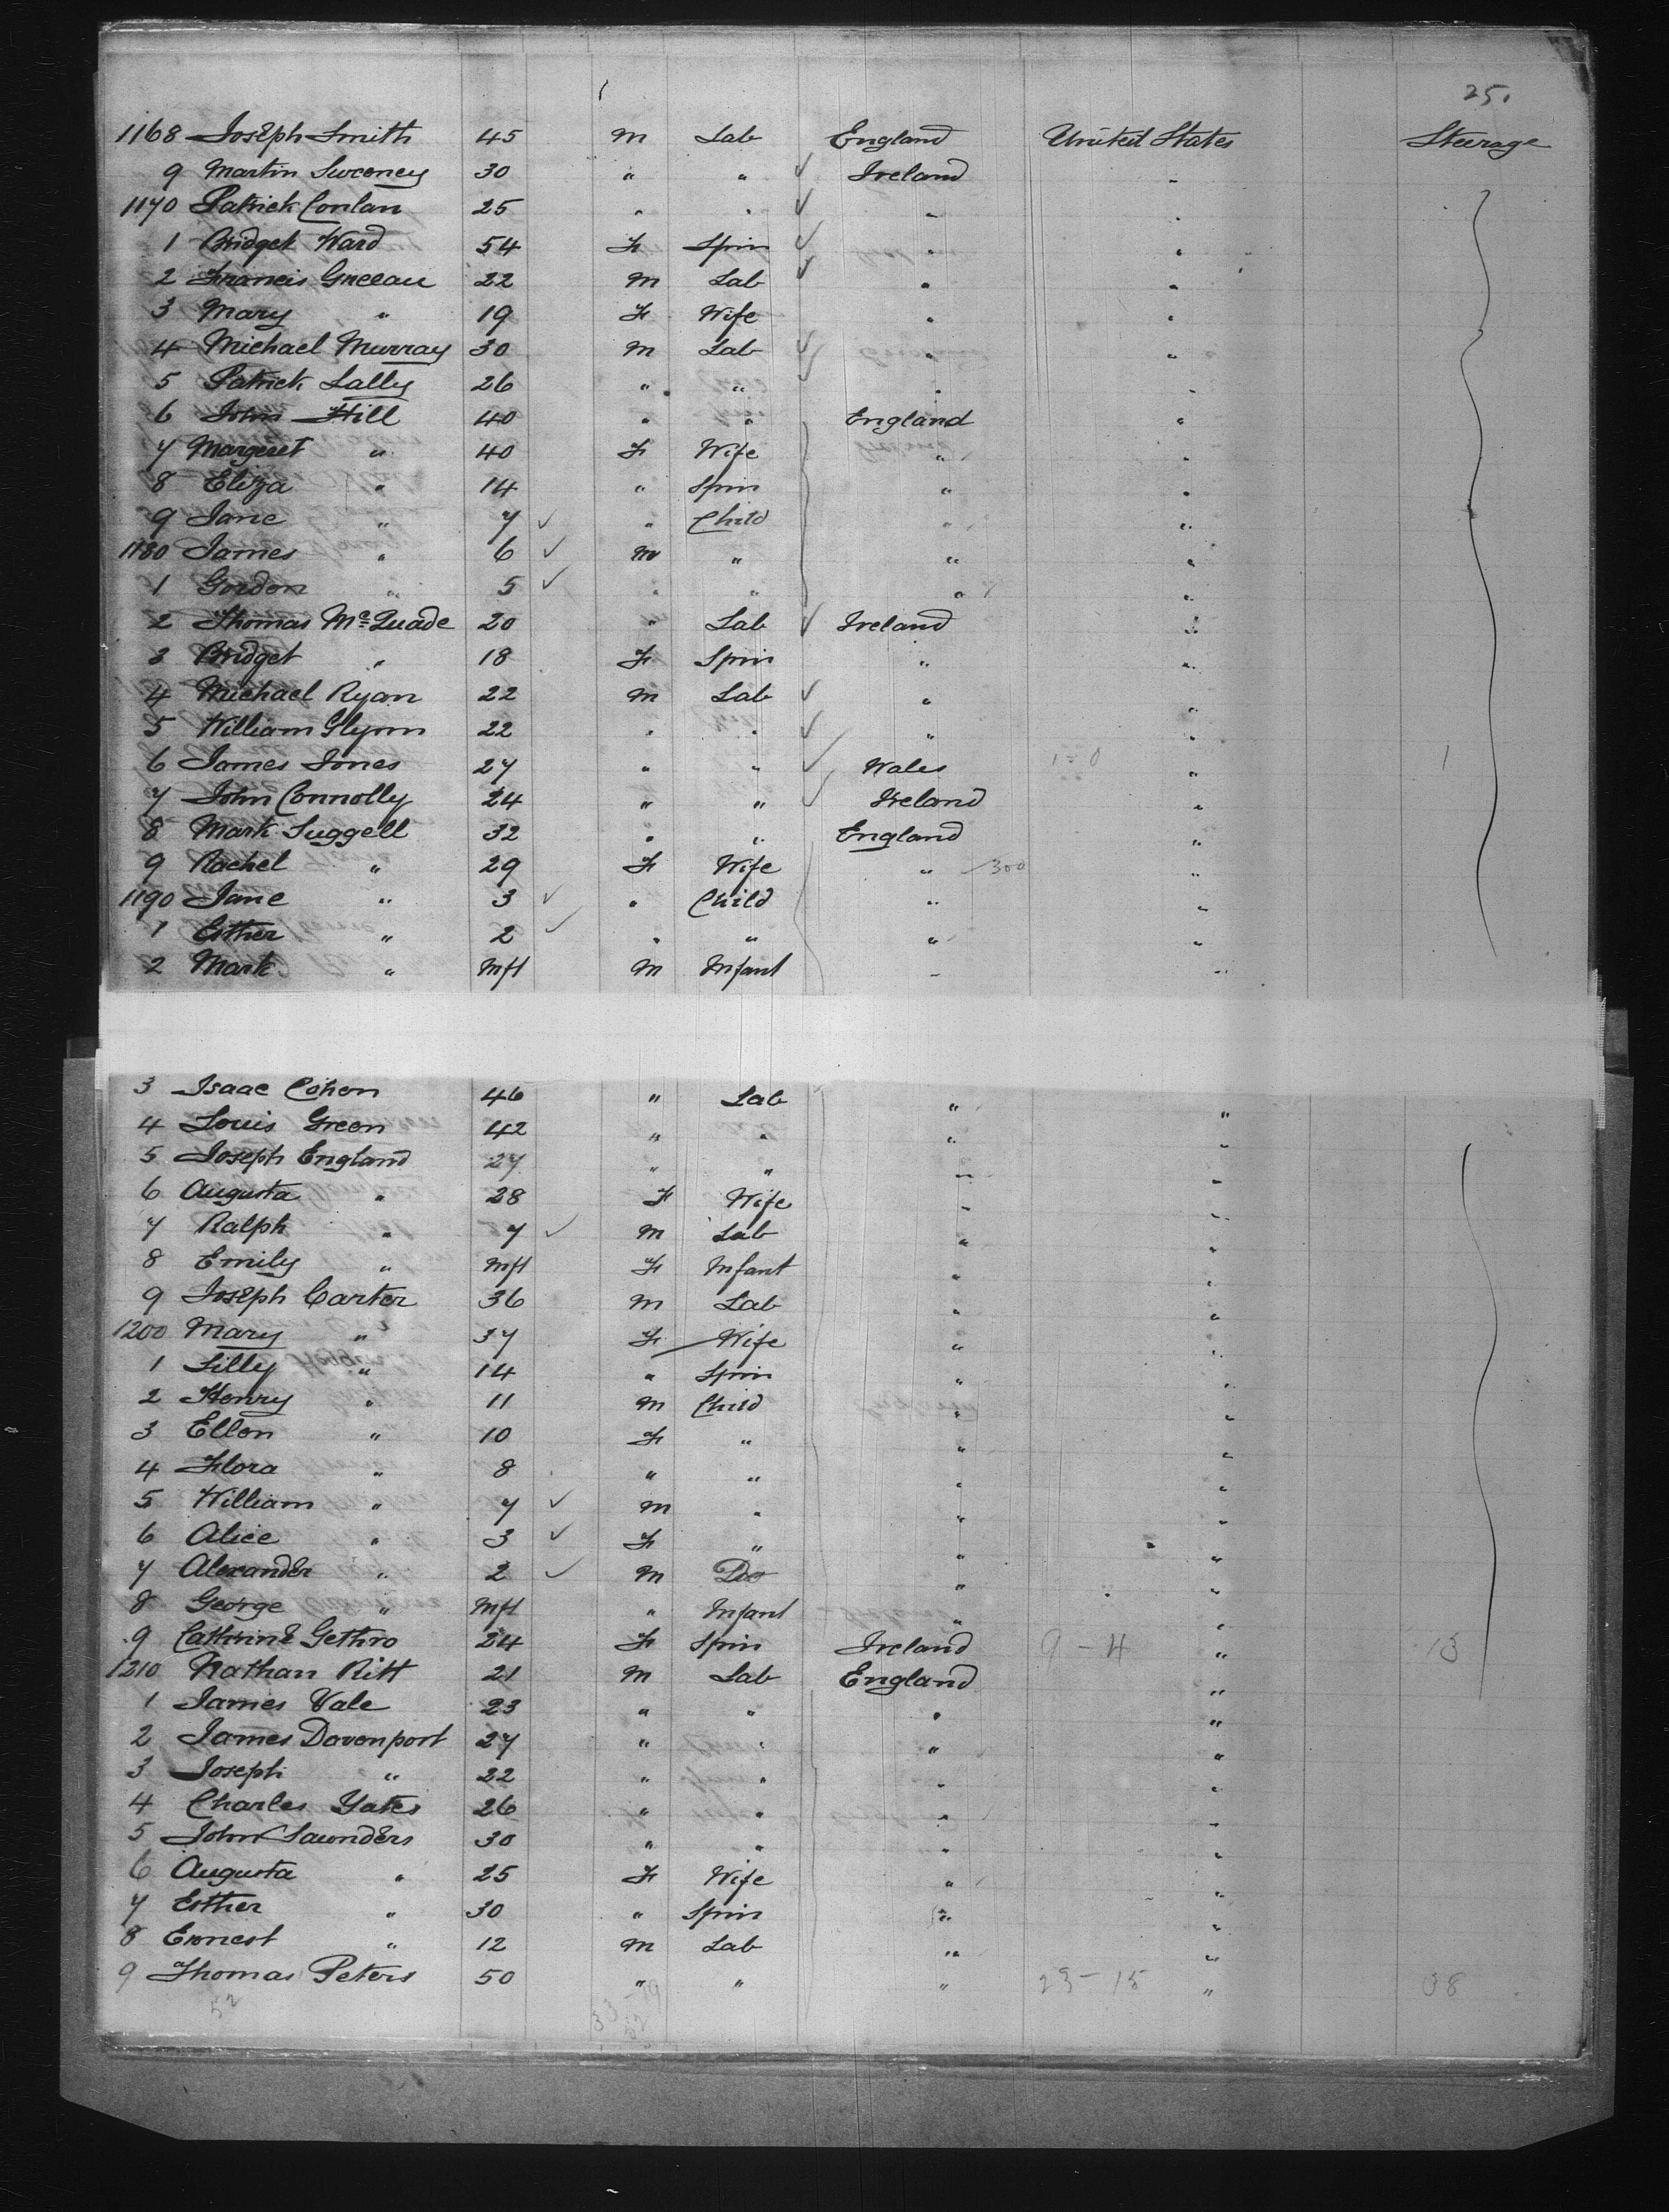 25.
1168 Joseph Smith 45 M Lab England United States Steerage
9 Martin Sweeney 30 " " ✓ Ireland "
1170 Patrick Conlan 25 " " ✓ " "
1 Bridget Ward 54 F Spin ✓ " "
2 Francis 22 M Lab ✓ " "
3 Mary " 19 F Wife " "
4 Michael Murray 30 M Lab ✓ " "
5 Patrick Lally 26 " " ✓ " "
6 John Hill 40 " " England "
7 Margeret " 40 F Wife " "
8 Eliza " 14 " Spin " "
9 Jane " 7 ✓ " Child " "
1180 James " 6 ✓ M " " "
1 Gordon " 5 ✓ " " " "
2 Thomas McQuade 20 " Lab ✓ Ireland "
3 Bridget " 18 F Spin " "
4 Michael Ryan 22 M Lab ✓ " "
5 William Glynn 22 " " ✓ " "
6 James Jones 27 " " ✓ Wales 1-0 " 1
7 John Connolly 24 " " ✓ Ireland "
8 Mark Suggell 32 " " England "
9 Rachel " 29 F Wife " 300 "
1190 Jane " 3 ✓ " Child " "
1 Esther " 2 ✓ " " " "
2 Mark " Inft M Infant " "
3 Isaac Cohen 46 " Lab " "
4 Louis Green 42 " " " "
5 Joseph England 27 " " " "
6 Augusta " 28 F Wife " "
7 Ralph " 7 ✓ M Lab " "
8 Emily " Inft F Infant " "
9 Joseph Carter 36 M Lab " "
1200 Mary " 37 F Wife " "
1 Lilly " 14 " Spin " "
2 Henry " 11 M Child " "
3 Ellen " 10 F " " "
4 Flora " 8 " " " "
5 William " 7 ✓ M " " "
6 Alice " 3 ✓ F " " "
7 Alexander " 2 ✓ M Do " "
8 George " Inft " Infant " "
9 Cathrine Gethro 24 F Spin Ireland 9-4 " 13
1210 Nathan Ritt 21 M Lab England "
1 James Vale 23 " " " "
2 James Davenport 27 " " " "
3 Joseph " 22 " " " "
4 Charles Yates 26 " " " "
5 John Saunders 30 " " " "
6 Augusta " 25 F Wife " "
7 Esther " 30 " Spin " "
8 Ernest " 12 M Lab " "
9 Thomas Peters 50 " " " 23-15 " 38
52